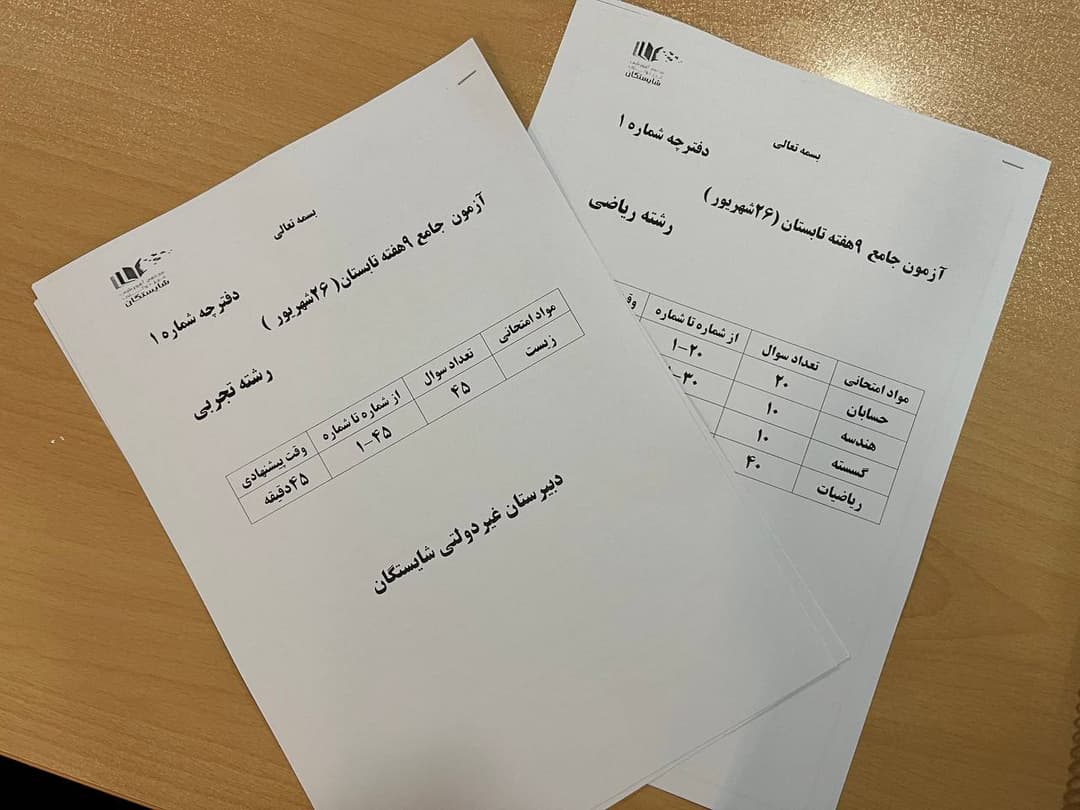 شایستگان
بسمه تعالی
دفترچه شماره ۱
آزمون جامع ۹هفته تابستان( ۲۶شهریور )
رشته تجربی
مواد امتحانی تعداد سوال از شماره تا شماره وقت پیشنهادی
زیست ۴۵ ۱-۴۵ ۴۵دقیقه
دبیرستان غیردولتی شایستگان
شایستگان
بسمه تعالی
دفترچه شماره ۱
آزمون جامع ۹هفته تابستان (۲۶شهریور )
رشته ریاضی
مواد امتحانی تعداد سوال از شماره تا شماره
حسابان ۲۰ ۱-۲۰
هندسه ۱۰
گسسته ۱۰
ریاضیات ۴۰